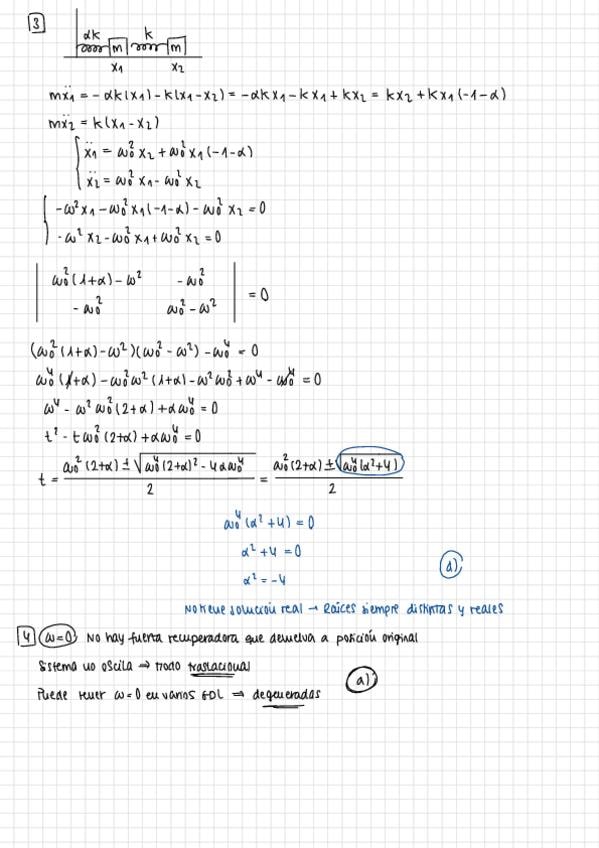 3
αk k
m m
x1 x2
mẍ1 = -αk(x1) - k(x1-x2) = -αkx1 - kx1 + kx2 = kx2 + kx1(-1-α)
mẍ2 = k(x1-x2)
ẍ1 = ω0² x2 + ω0² x1(-1-α)
ẍ2 = ω0² x1 - ω0² x2
-ω²x1 - ω0² x1(-1-α) - ω0² x2 = 0
-ω² x2 - ω0² x1 + ω0² x2 = 0
ω0²(1+α) - ω² -ω0²
-ω0² ω0² - ω² = 0
(ω0²(1+α) - ω²)(ω0² - ω²) - ω0⁴ = 0
ω0⁴(1+α) - ω0²ω²(1+α) - ω²ω0² + ω⁴ - ω0⁴ = 0
ω⁴ - ω²ω0²(2+α) + αω0⁴ = 0
t² - tω0²(2+α) + αω0⁴ = 0
t = (ω0²(2+α) ± √(ω0⁴(2+α)² - 4αω0⁴))/2 = (ω0²(2+α) ± √(ω0⁴(α²+4)))/2
ω0⁴(α²+4) = 0
α²+4 = 0
α² = -4
d)
No tiene solución real → Raíces siempre distintas y reales
4 ω=0 No hay fuerza recuperadora que devuelva a posición original
Sistema no oscila → modo traslacional
Puede tener ω=0 en varios GDL → degeneradas
a)